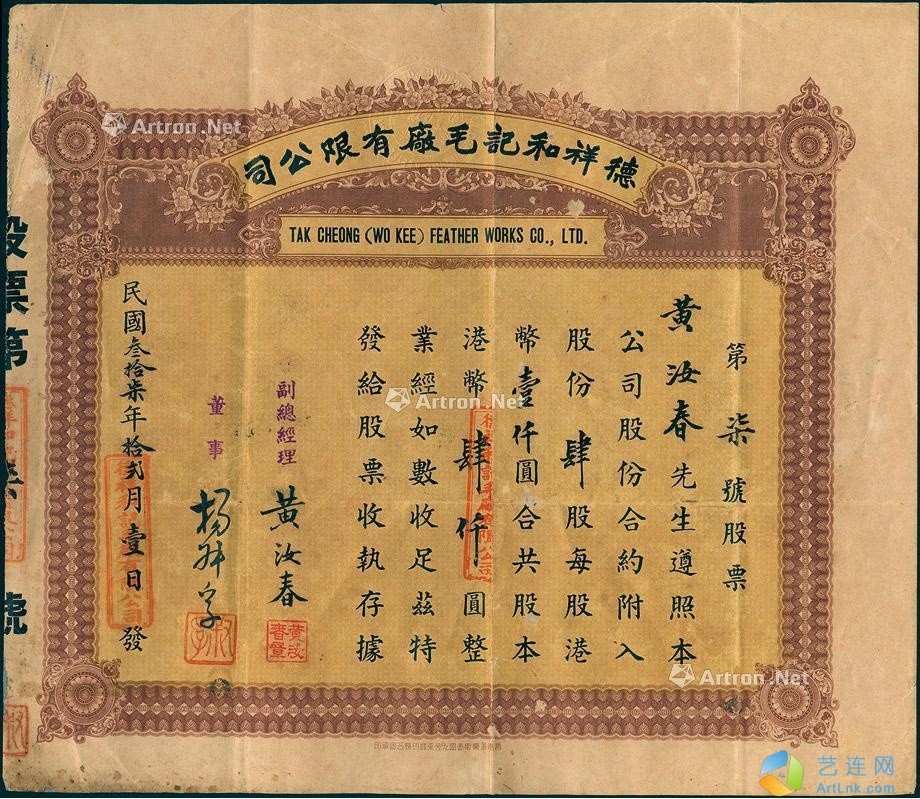 德祥和記毛廠有限公司
TAK CHEONG (WO KEE) FEATHER WORKS CO., LTD.
第柒號股票
黃汝春先生遵照本
公司股份合約附入
股份肆股每股港
幣壹仟圓合共股本
港幣肆仟圓整
業經如數收足茲特
發給股票收執存據
副總經理 黃汝春
董事
民國叁拾柒年拾弍月壹日發
股票第
號
Artron.Net
Artron.Net
Artron.Net
艺连网
ArtLnk.com